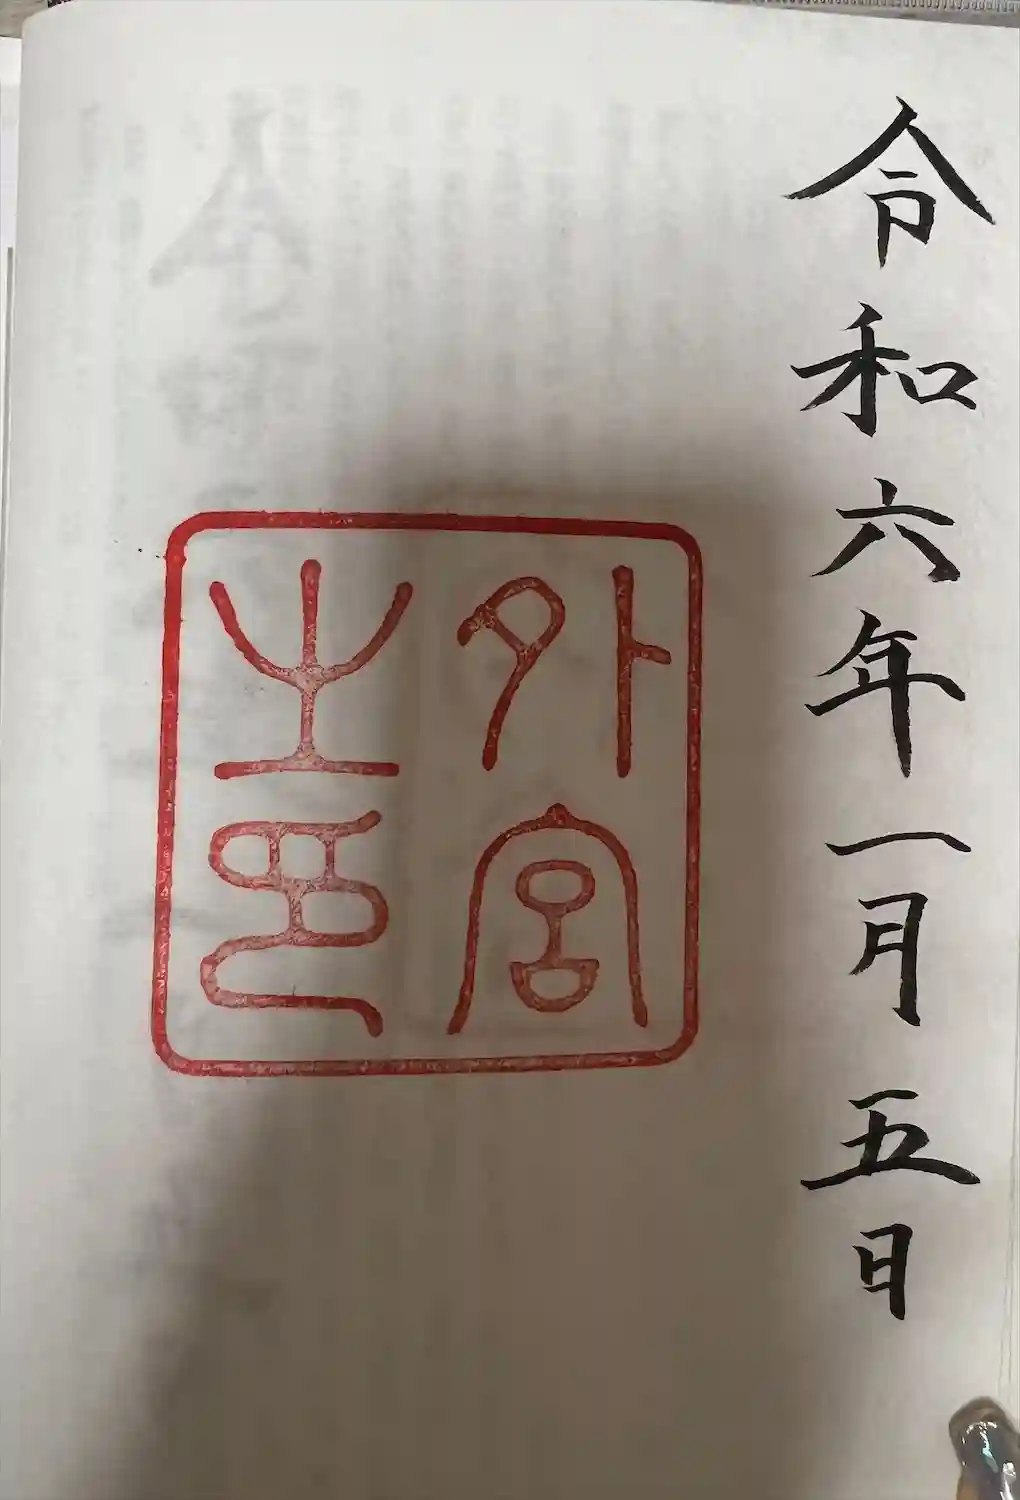 令和六年一月五日
外宮
之印